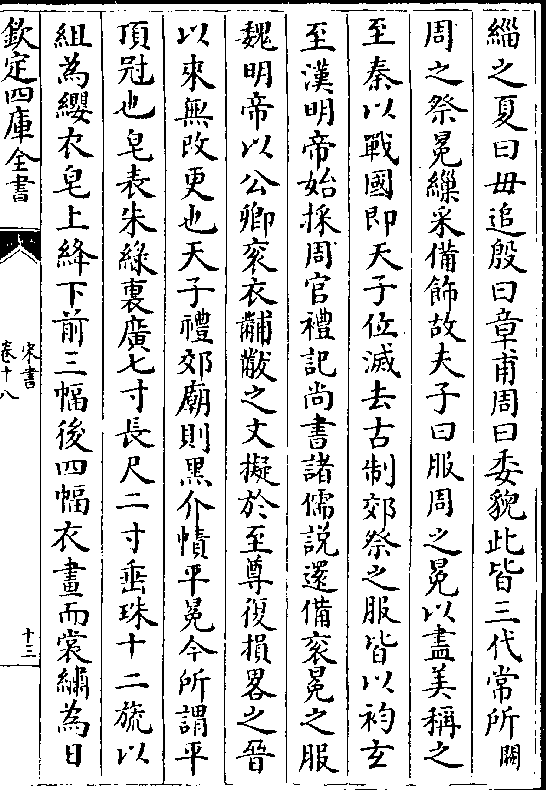 緇之夏曰毋追殷曰章甫周曰委貌此皆三代常所闕
周之祭冕繅采備飾故夫子曰服周之冕以盡美稱之
至秦以戰國即天子位滅去古制郊祭之服皆以袀玄
至漢明帝始採周官禮記尚書諸儒說還備衮冕之服
魏明帝以公卿衮衣黼黻之文擬於至尊復損畧之晉
以來無改更也天子禮郊廟則黑介幘平冕今所謂平
頂冠也皂表朱綠裏廣七寸長尺二寸垂珠十二旒以
組為纓衣皂上絳下前三幅後四幅衣畫而裳繡為日
欽定四庫全書
宋書
卷十八
十三